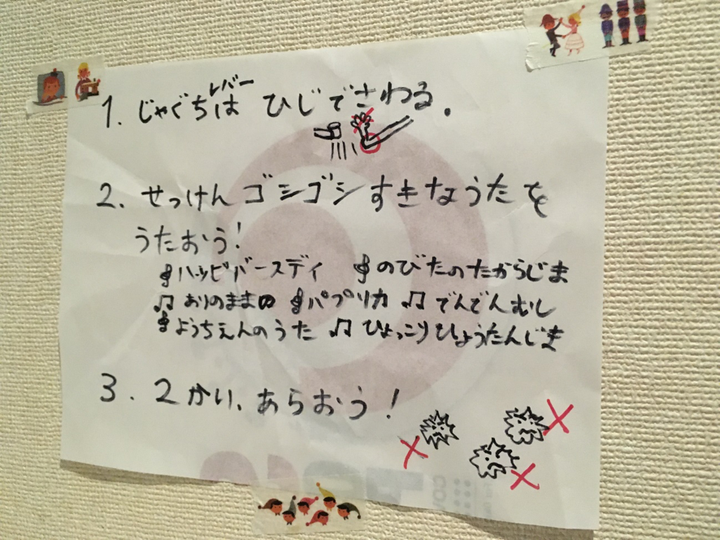 レバー
1. じゃぐちは ひじでさわる.
2. せっけん ゴシゴシ すきなうたを
うたおう!
ハッピバースディ のびたのたからじま
おりのままの パプリカ でんでんむし
ようちえんのうた ひょっこりひょうたんじま
3. 2かい、あらおう!